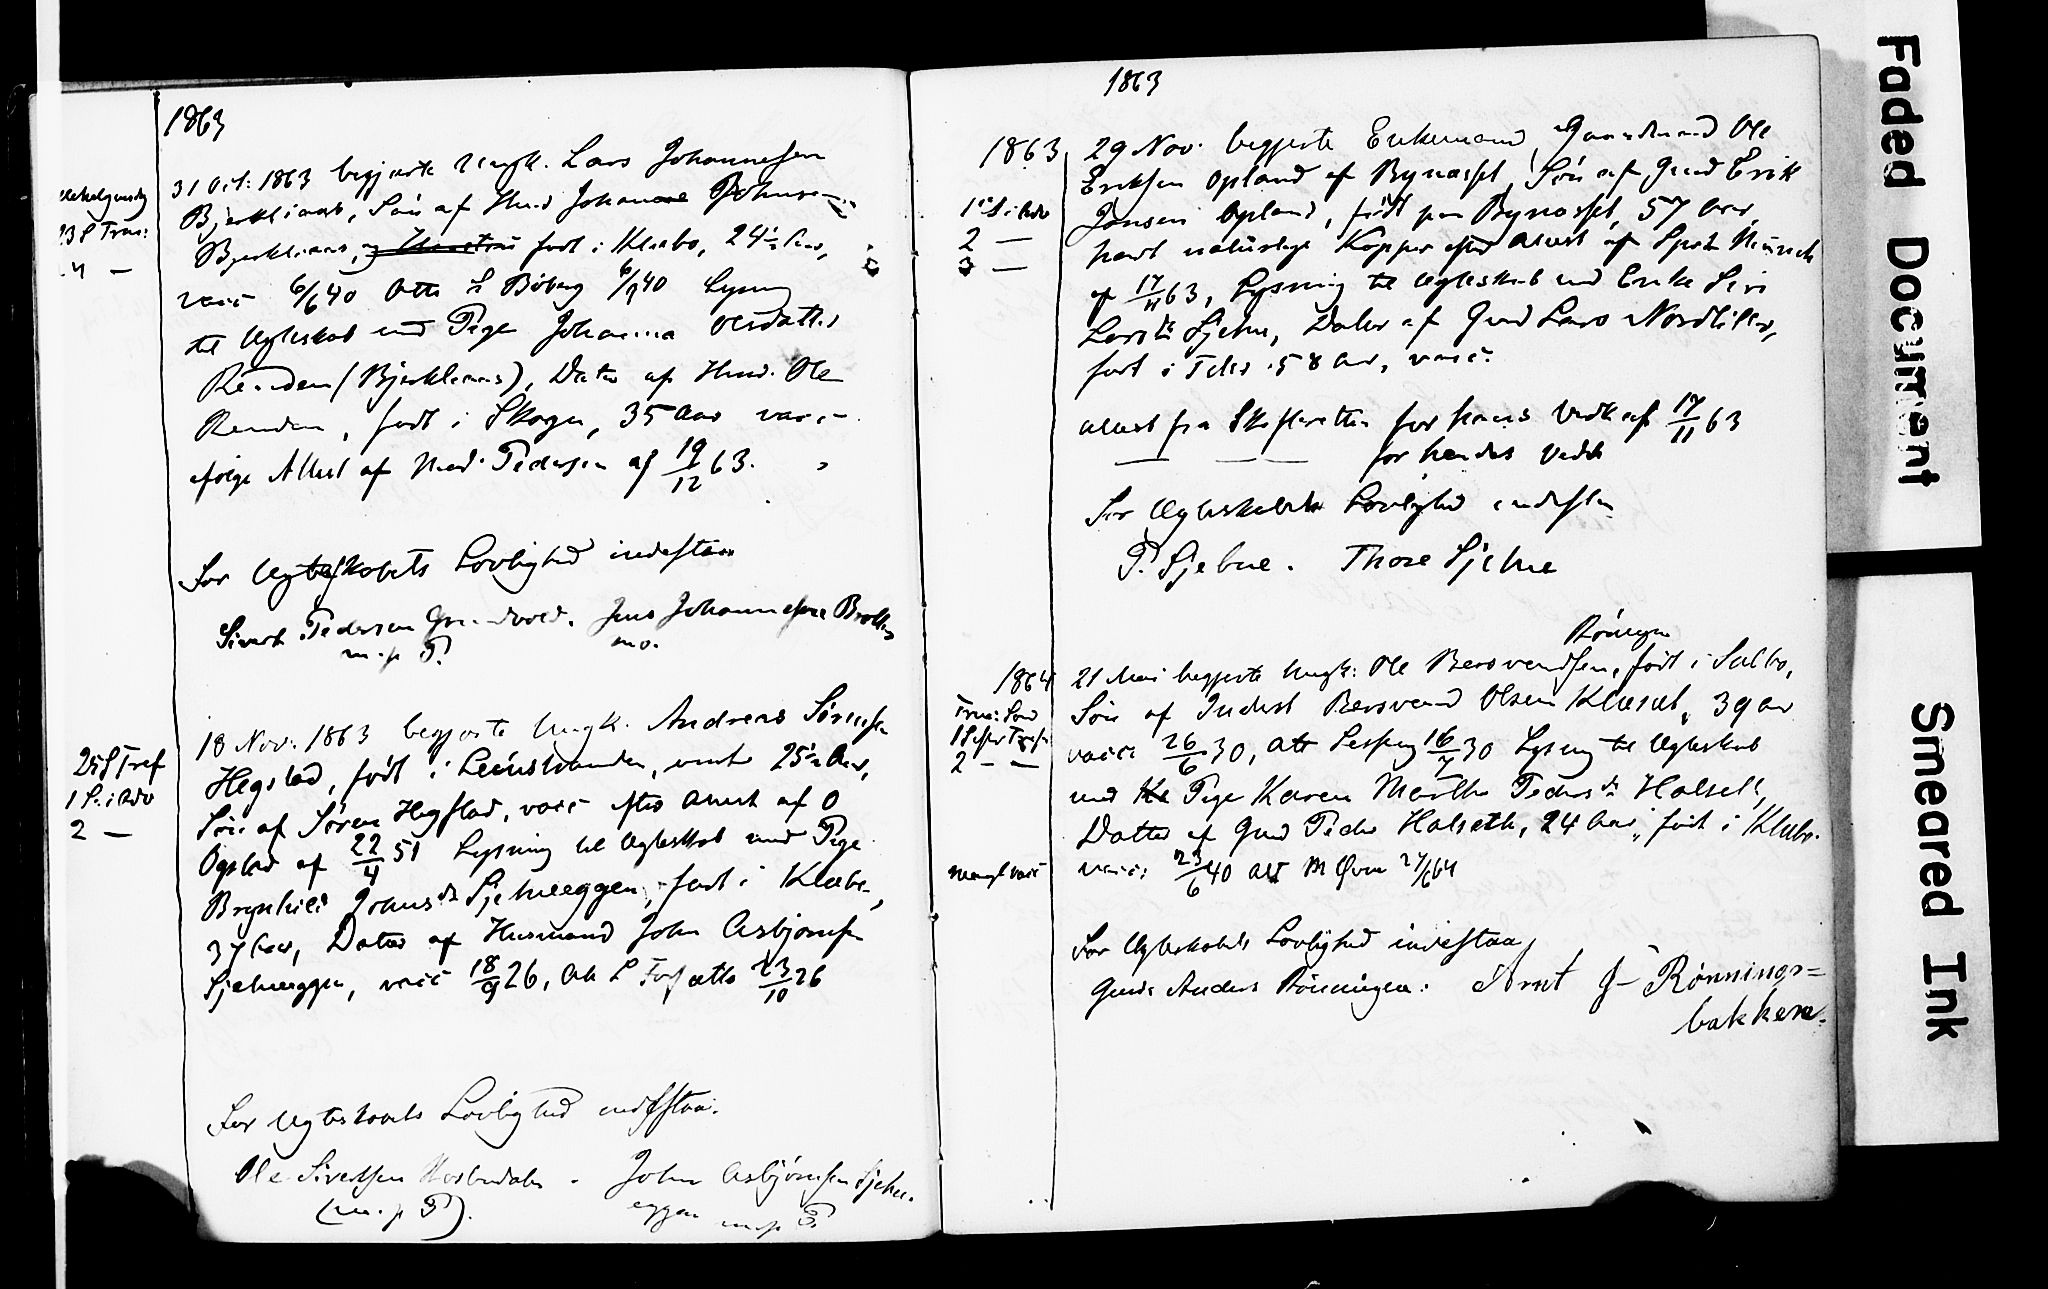 1863
31 Oct: 1863 begjærte Ungk. Lars Johannesen
Bjørkliaas, Søn af Husd Johannes Johnsen
Bjørkliaas, født i Klæbo, 24½ Aar,
vacc 6/6 40 Att S Biberg 6/9 40 Lysning
til Ægteskab med Pige Johanna Olsdatter
Renden (Bjørkliaas), Datter af Husd. Ole
Renden, født i Skogn, 35 Aar vacc
ifølge Attest af Pedersen af 19/12 63.
For Ægteskabets Lovlighed indestaae
Sivert Pedersen Grendvold. Jens Johannesen
m. p. P. m.
23 S Trin:
4 —
18 Nov: 1863 begjærte Ungk. Andreas Sørensen
Hegstad, født i Leinstranden, 25½ Aar,
Søn af Søren Hegstad, vacc efter Attest af O
Opstad af 22/4 51 Lysning til Ægteskab med Pige
Brynhild Johnsdt Sjetneeggen, født i Klæbo,
37 Aar, Datter af Husmand John Asbjørnsen
Sjetneeggen, vacc 18/9 26, Att L 23/10 26
Tref
1 S. i Adv
2 —
For Ægteskabets Lovlighed indestaae.
Ole Sivertsen John Asbjørnsen Sjetne-
(m. p. P). eggen m. p. P.
1863
1863 29 Nov. begjærte Enkemand, Gaardmand Ole
Eriksen Opland af Bynæsset, Søn af Gmd Erik
Jonsen Opland, født paa Bynæsset, 57 Aar,
havt naturlige Kopper efter Attest af Sprst Münch
af 17/11 63, Lysning til Ægteskab med Enke Siri
Larsdt Sjetne, Datter af Gmd Lars
født i Tiler 58 Aar, vacc.
1 S. i Adv
2 —
3 —
Attest fra Skifteretten for hans Vedk af 17/11 63
— — — for hendes Vedk
For Ægteskabets Lovlighed indestaae
P. Sjetne. Thore Sjetne
Rönningen
1864 21 Mai begjærte Ungk: Ole Bersvendsen, født i Sælbo,
Søn af Inderst Bersvend Olsen Klæsæt, 39 Aar
vacc 26/6 30, Att 16/7 30 Lysning til Ægteskab
med Pige Karen Marthe Pedersdt Halseth,
Datter af Gmd Peder Halseth, 24 Aar, født i Klæbo.
vacc: 23/6 40 Att 27/6 64
2 — —
For Ægteskabets Lovlighed indestaae
Gmd: Anders Rönningen: Arnt J- Rønnings=
bakken.
Faded Document
Smeared Ink